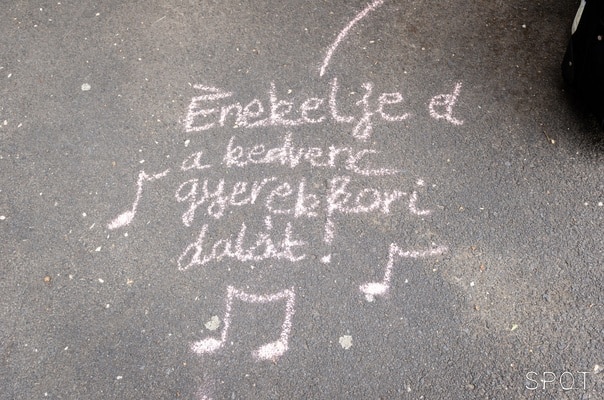 Énekelje d
a kedvenc
gyerekkori
dalát!
SPOT